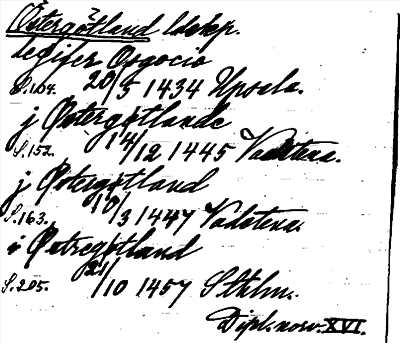 Östergötland ldskp.
legifer Osgocio
S. 104. 20/5 1434 Upsala.
j Østergøtlande
S. 152. 14/12 1445 Vadstena.
j Østergøtland
S. 163. 10/3 1447 Vadstena.
i Øetregøtland
S. 205. 21/10 1457 Sthlm.
Dipl. norv. XVI.